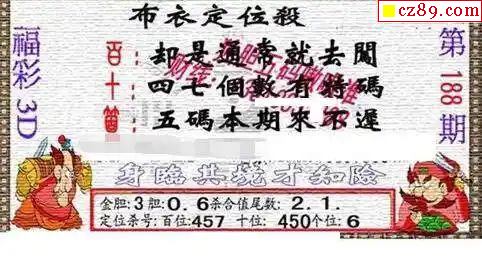 cz89.com
布衣定位殺
福彩3D
百:却是通常就去閙
十:四七個數有特碼
個:五碼本期來不遲
第188期
身臨其境才知險
金胆:3胆:0.6杀合值尾数:2.1.
定位杀号:百位:457 十位:450个位:6